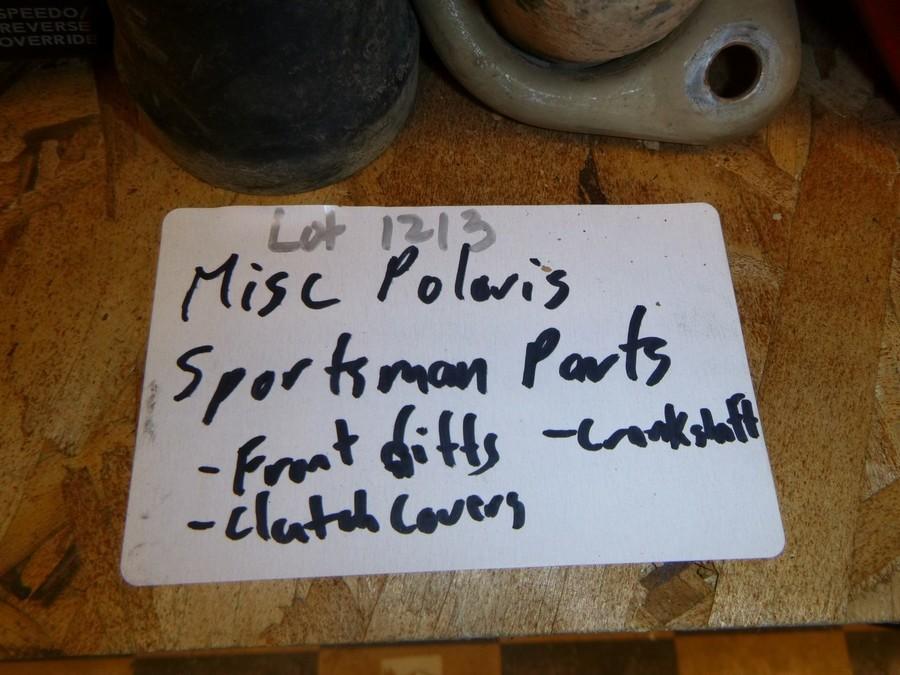 SPEEDO/
REVERSE
OVERRIDE
Lot 1213
Misc Polaris
Sportsman Parts
- Front diffs - Crankshaft
- Clutch Covers